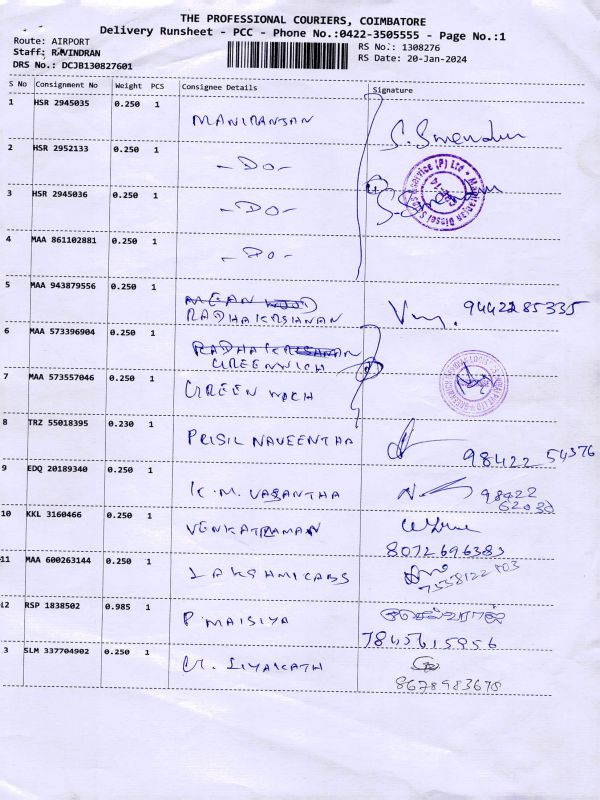 THE PROFESSIONAL COURIERS, COIMBATORE
Delivery Runsheet - PCC - Phone No.:0422-3505555 - Page No.:1
Route: AIRPORT
Staff: RAVINDRAN
DRS No.: DCJB130827601
RS No.: 1308276
RS Date: 20-Jan-2024
S No Consignment No Weight PCS Consignee Details Signature
1 HSR 2945035 0.250 1 MANIRANJAN S. Surendur
2 HSR 2952133 0.250 1 -DO-
3 HSR 2945036 0.250 1 -DO-
4 MAA 861102881 0.250 1 -DO-
5 MAA 943879556 0.250 1 RADHAKRSHANAN 9442285335
6 MAA 573396904 0.250 1 RADHAKRISHANAN
GREENWICH
7 MAA 573557046 0.250 1 GREEN WICH
8 TRZ 55018395 0.230 1 PRISIL NAVEENTHA 98422 54376
9 EDQ 20189340 0.250 1 K.M. VASANTHA 98422
62030
10 KKL 3160466 0.250 1 VENKATRAMAN
8072696383
11 MAA 600263144 0.250 1 LAKSHMICABS
7558122703
12 RSP 1838502 0.985 1 P. MAISIYA
7845615956
3 SLM 337704902 0.250 1 U. LIYAKATH
8678983678